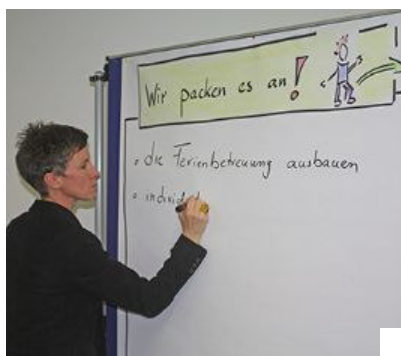 Wir packen es an!
• die Ferienbetreuung ausbauen
•